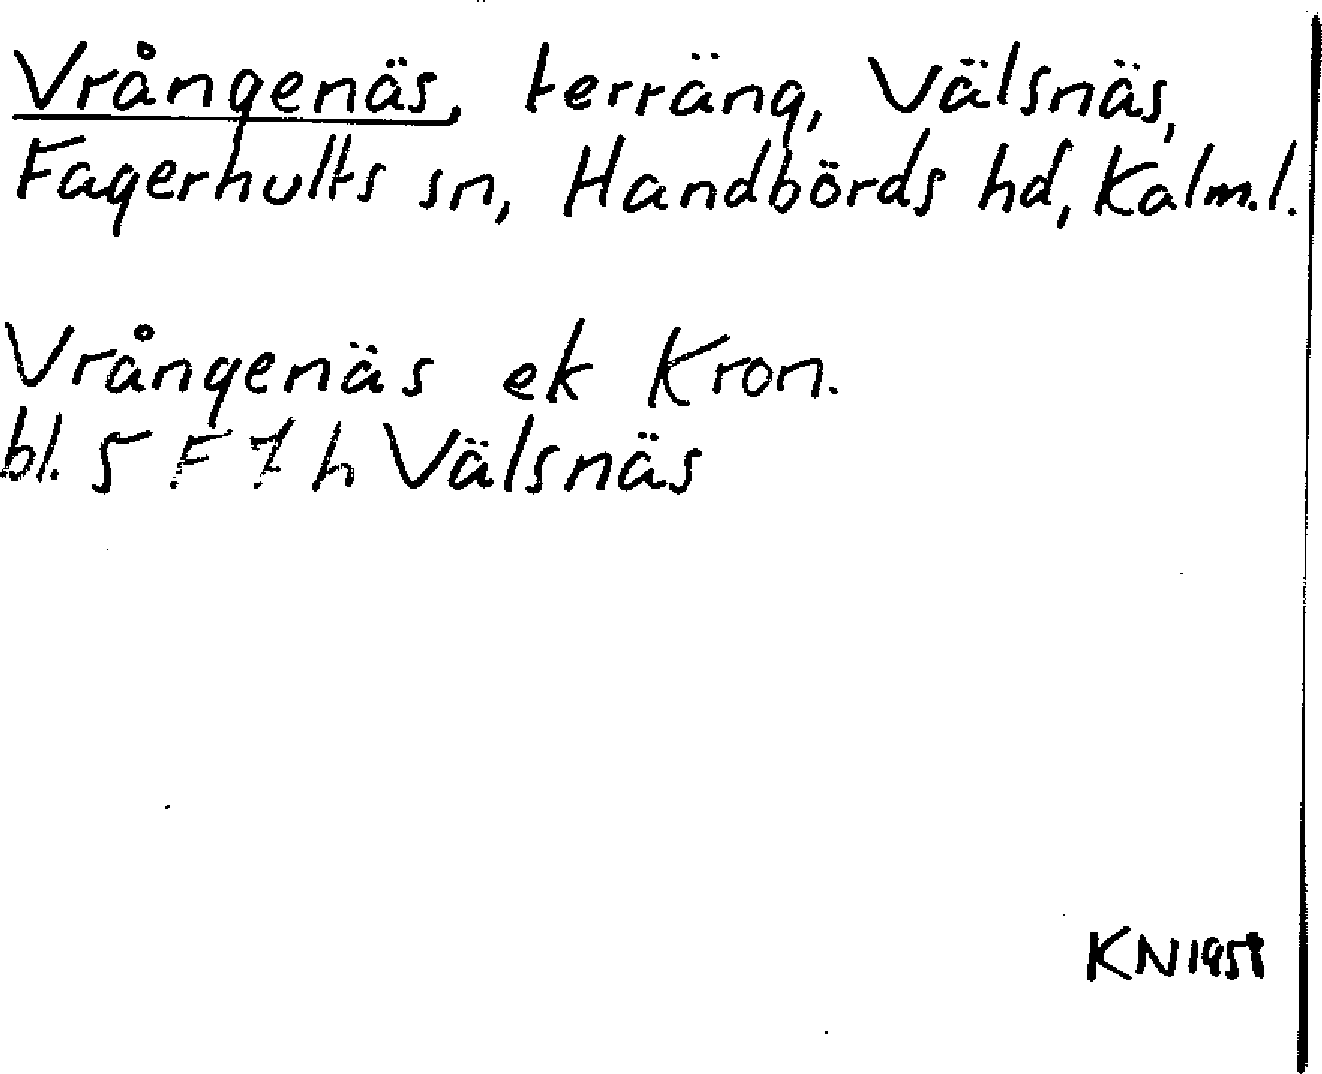 Vrångenäs, terräng, Välsnäs,
Fagerhults sn, Handbörds hd, Kalm.l.
Vrångenäs ek Kron.
bl. 5 F 7 h Välsnäs
KN 1958